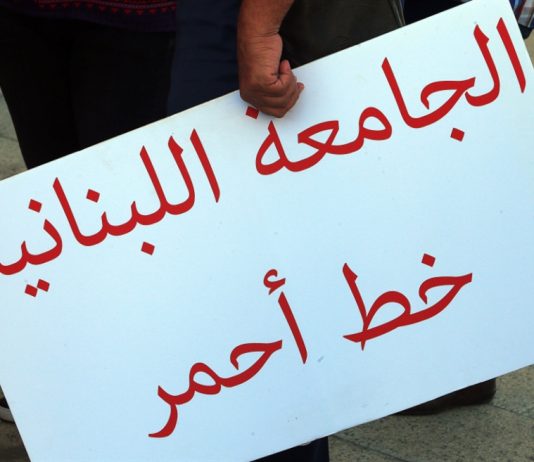 الجامعة اللبناني
خط أحمر